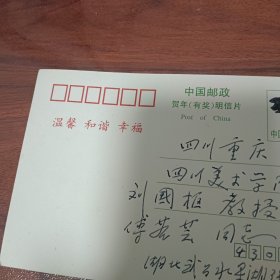 中国邮政
贺年（有奖）明信片
Post of China
温馨 和谐 幸福
四川重庆
四川美术学
刘国枢 教授
傅 芸 同志
430
湖北武